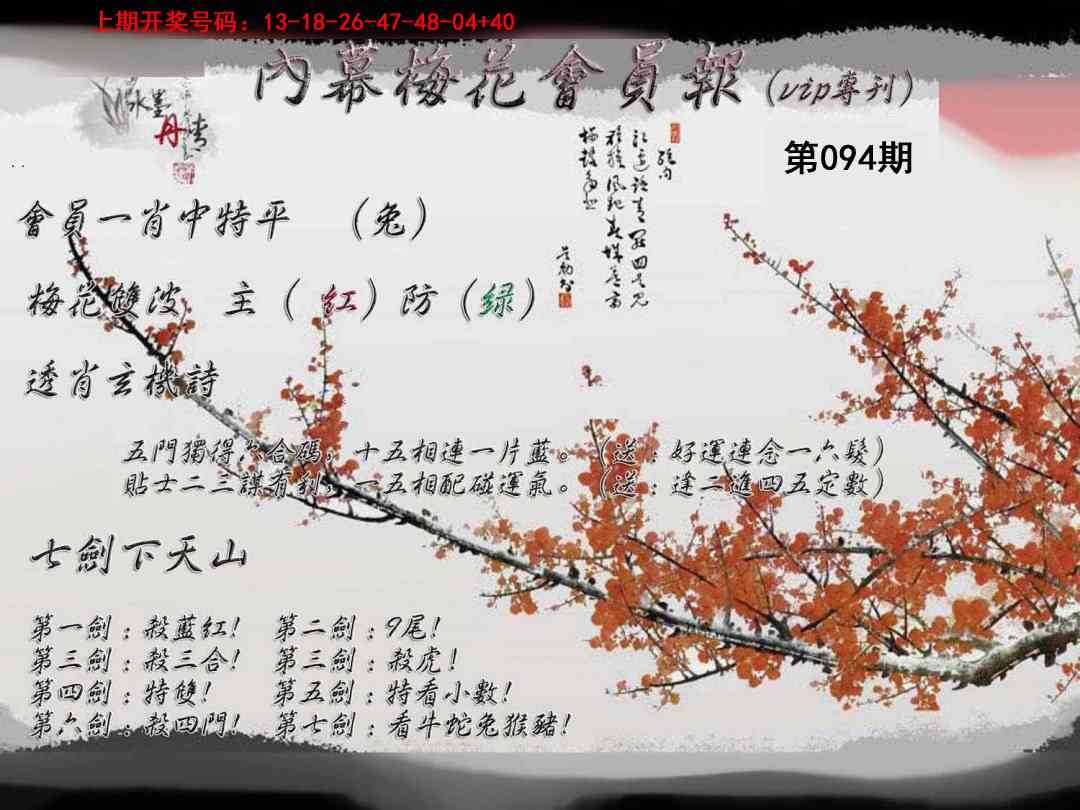 上期开奖号码：13-18-26-47-48-04+40
內幕梅花會員報（vip專刊）
水墨
丹情
第094期
會員一肖中特平 （兔）
梅花雙波 主（紅）防（綠）
透肖玄機詩
五門獨得六合碼，十五相連一片藍。（送：好運連念一六發）
貼士二三謀有利，一五相配碰運氣。（送：逢二進四五定數）
七劍下天山
第一劍：殺藍紅！ 第二劍：9尾！
第三劍：殺三合！ 第三劍：殺虎！
第四劍：特雙！ 第五劍：特看小數！
第六劍：殺四門！ 第七劍：看牛蛇兔猴豬！